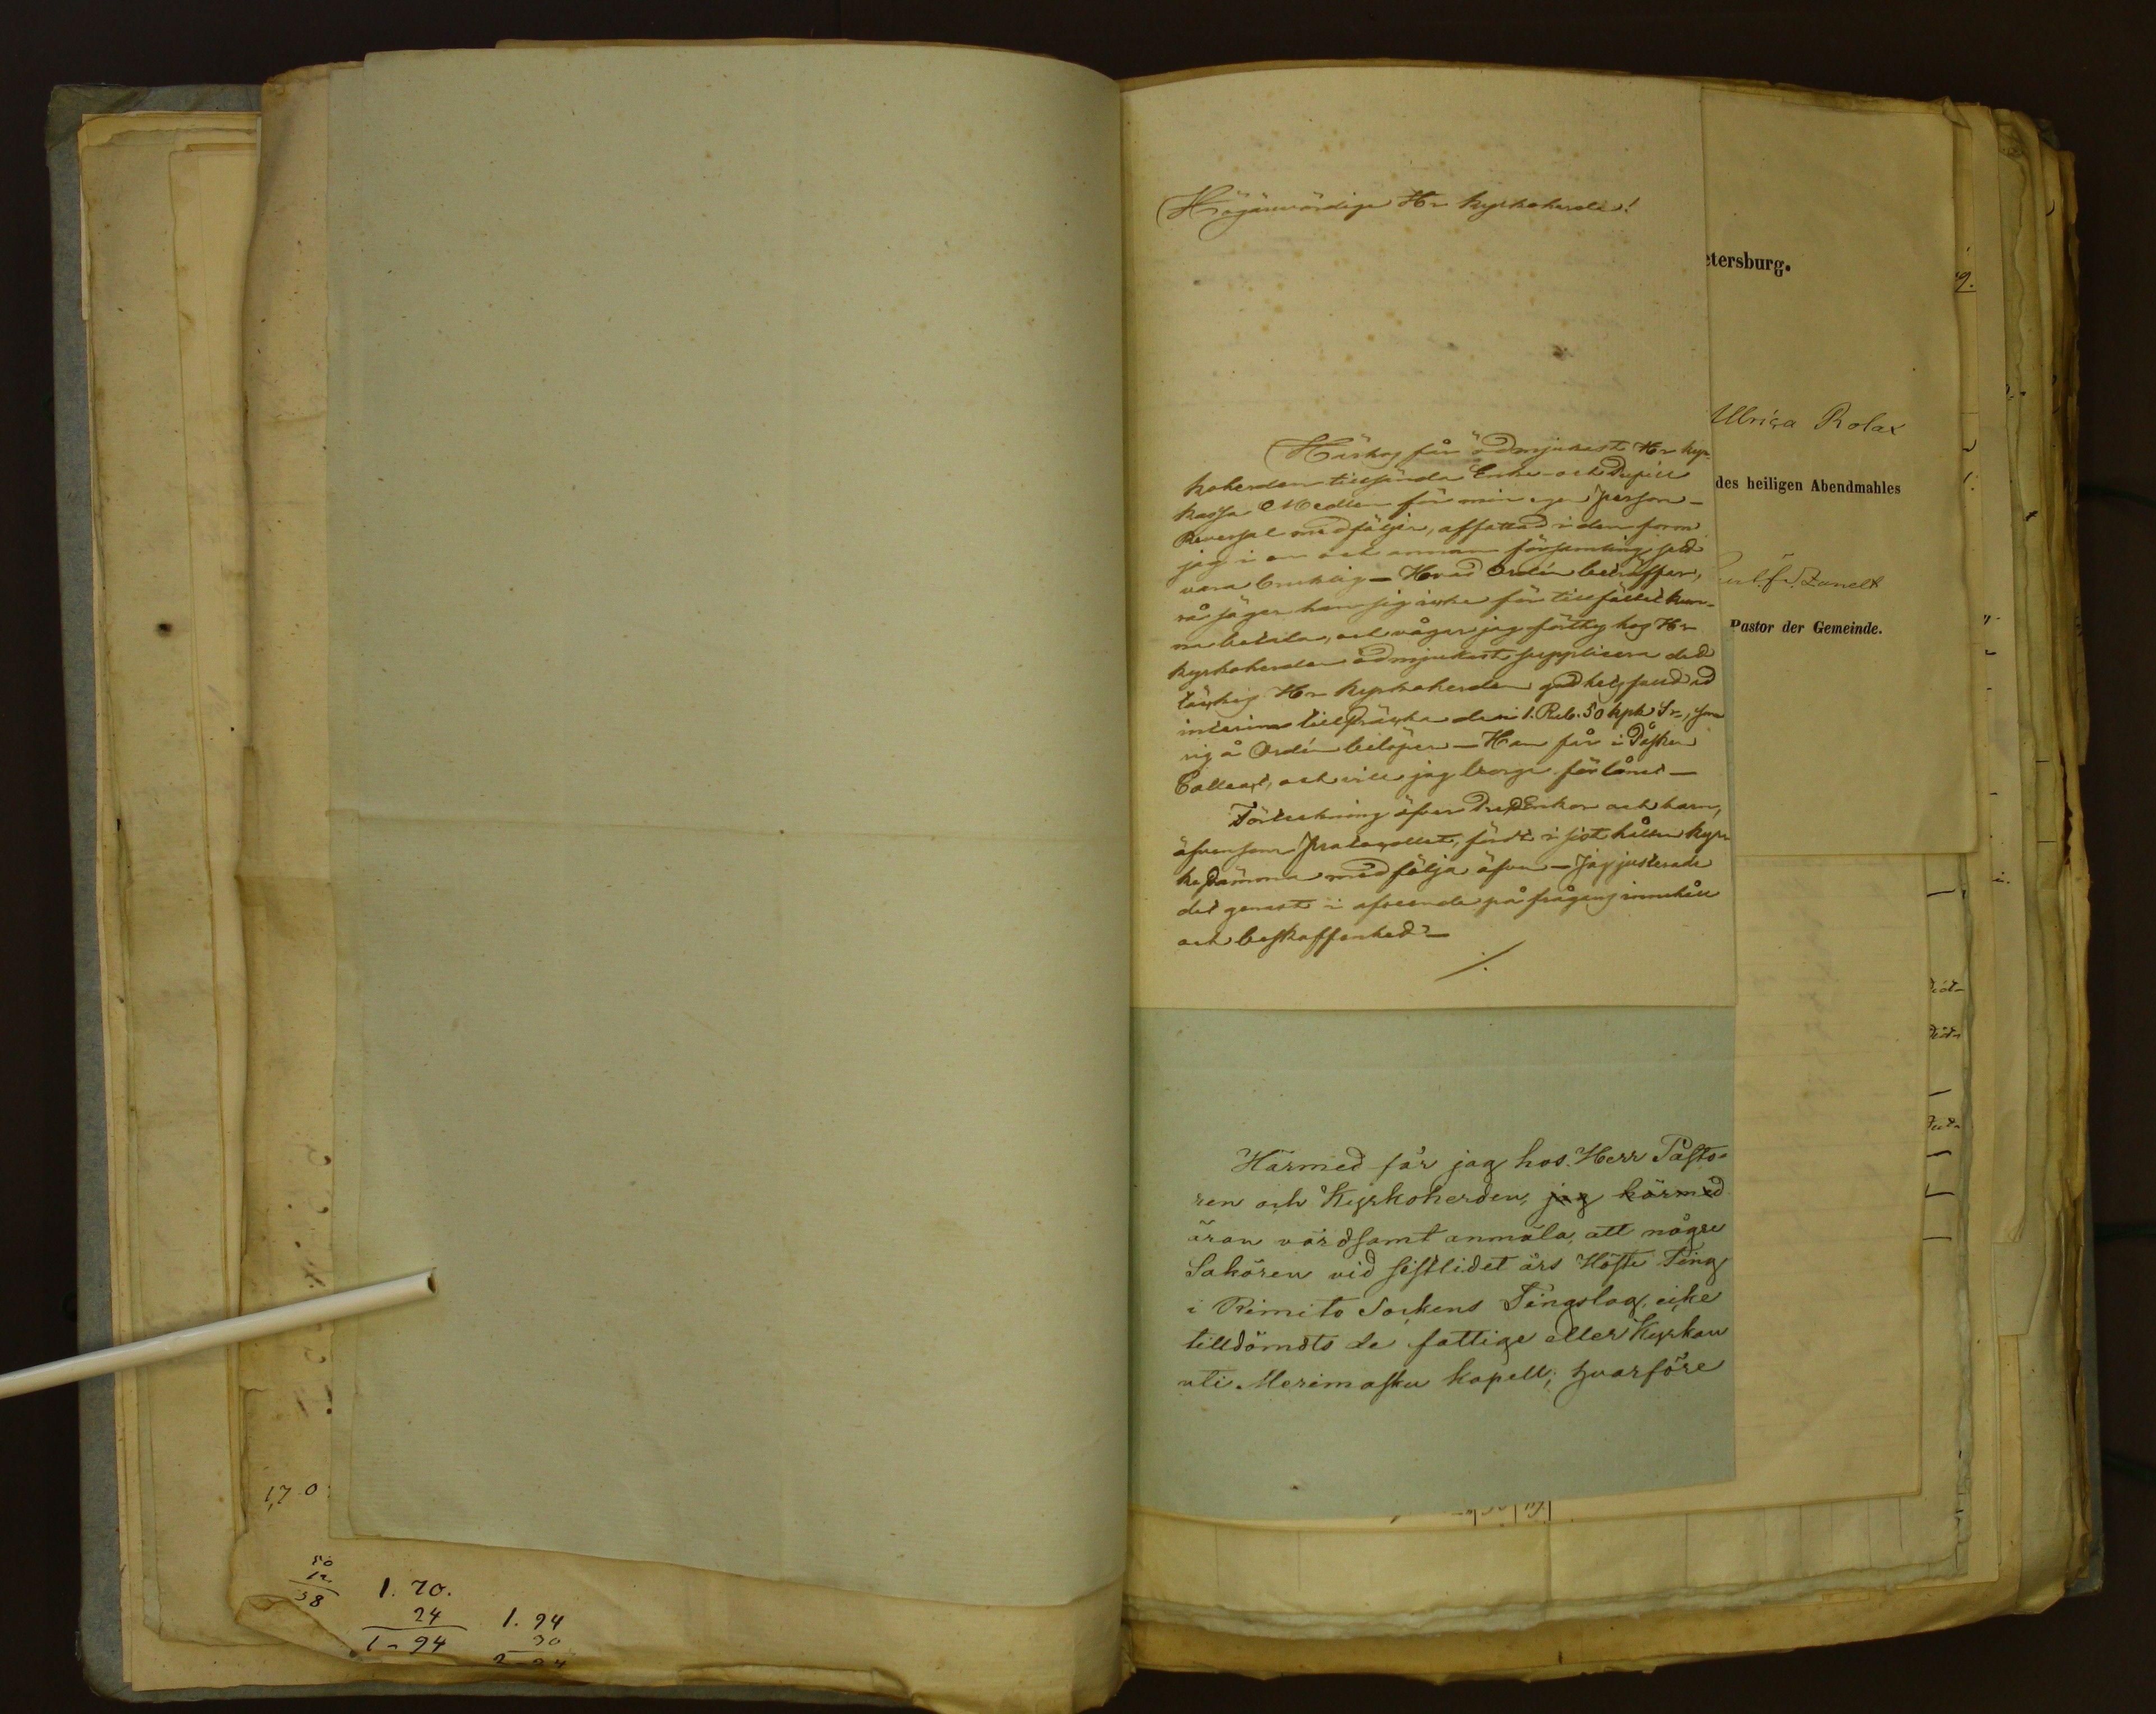 Högärevördige Hr Kyrkoherde!
Härhos får ödmjukast Hr Kyr-
koherden tillsända Enke- och Pupill
kassa Medlen för min egen person –
Reversal medföljer, affattad i den form
jag i en och annan församling sedt
vara bruklig – Hvad Ordén beträffar,
så säger han sig icke för tillfället kun-
na betala, och vågar jag förthy hos Hr
Kyrkoherden ödmjukast supplicera det
täcktes Hr Kyrkoherden godhetsfullt ad
interim tillskjuta de 1. Rub. 50 kpk Sr, som
sig å Ordén belöper – Han får i Påsken
Collect, och vill jag borga för lånet –
Förteckning öfver Prest Enkor och barn,
äfvensom Protocollet, fördt i sist hållen Kyr-
kostämma medfölja äfven – Jag justerade
det genast i afseende på frågans innehåll
och beskaffenhet –
./.
Härmed får jag hos Herr Pasto-
ren och Kyrkoherden, jag härmed
äran vördsamt anmäla, att några
Sakören vid sistlidet års Höste Ting
i Rimito Sockens Tingslag, icke
tilldömdts de fattige eller Kyrkan
uti Merimasku kapell; hvarföre
etersburg.
Ulrica Rolax
des heiligen Abendmahles
Pastor der Gemeinde.
1,70
50
12
38
1. 70.
24
1 - 94
1. 94
30
2 24